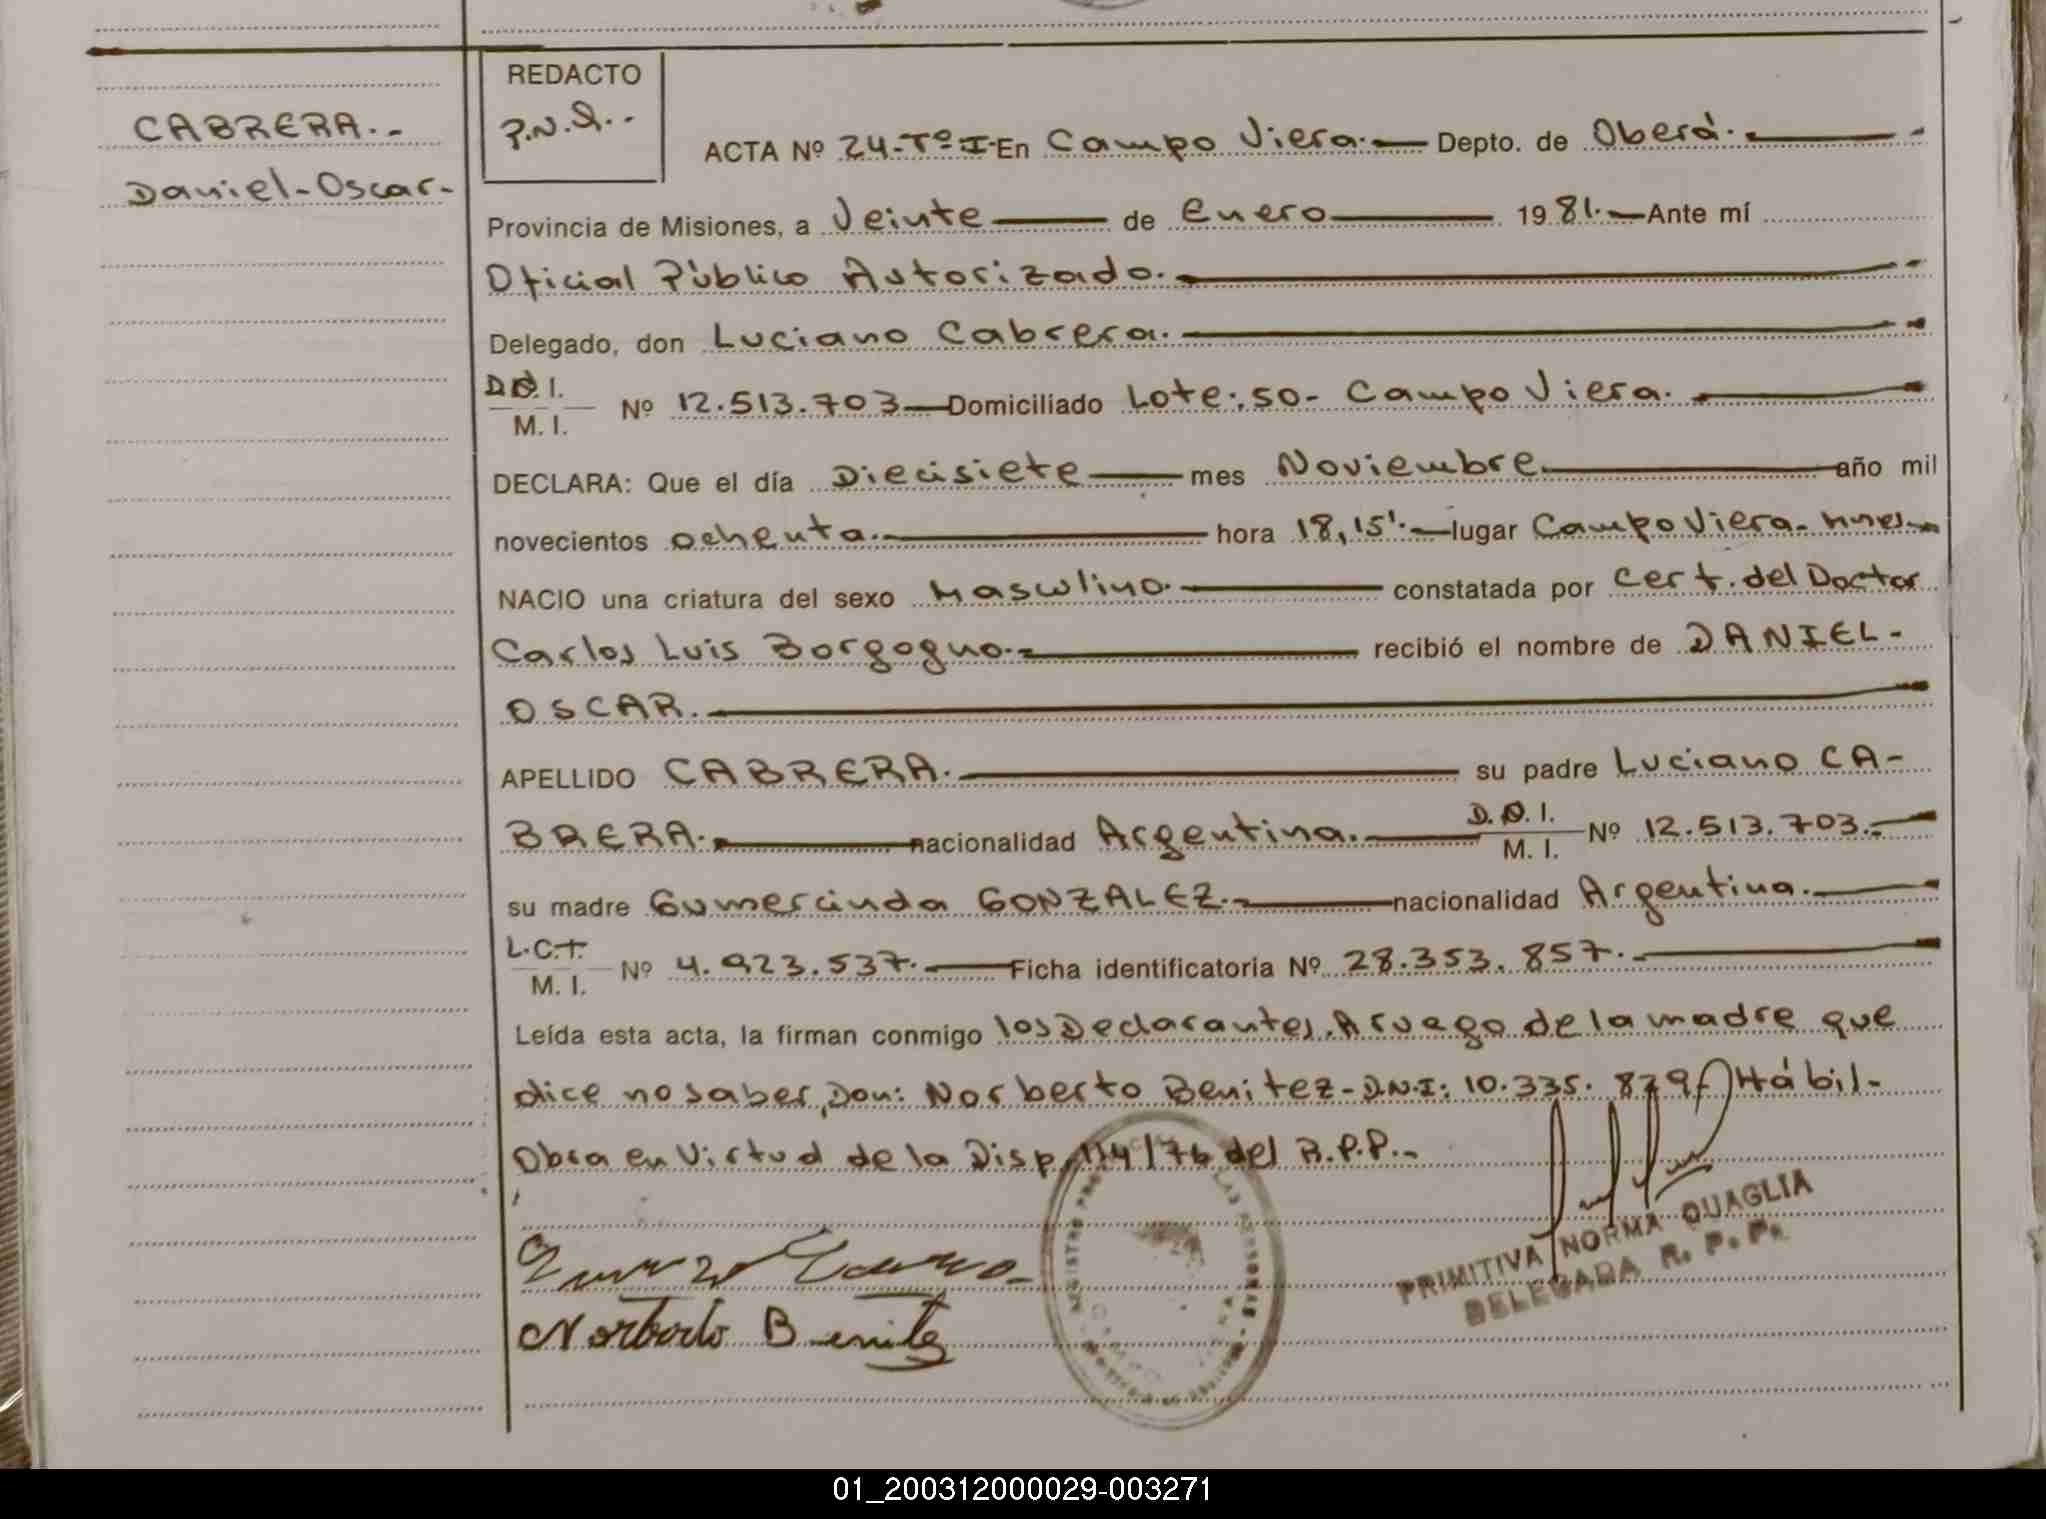 CABRERA.-
Daniel-Oscar-
REDACTO
P.N.Q..
ACTA Nº 24-Tº-I-En Campo Viera.— Depto. de Oberá.—
Provincia de Misiones, a Veinte — de Enero — 1981.— Ante mí
Oficial Público Autorizado.—
Delegado, don Luciano Cabrera.—
D.N.I.
M. I. Nº 12.513.703— Domiciliado Lote:,50- Campo Viera.—
DECLARA: Que el día Diecisiete — mes Noviembre.— año mil
novecientos ochenta.— hora 18,15'.— lugar Campo Viera- Mnes.—
NACIO una criatura del sexo Masculino.— constatada por Cert. del Doctor
Carlos Luis Borgogno.— recibió el nombre de DANIEL-
OSCAR.—
APELLIDO CABRERA.— su padre Luciano CA-
BRERA.— nacionalidad Argentina.— D.N.I.
M. I. Nº 12.513.703.—
su madre Gumercinda GONZALEZ.— nacionalidad Argentina.—
L.C.
M. I. Nº 4.923.537.— Ficha identificatoria Nº 28.353.857.—
Leída esta acta, la firman conmigo los Declarantes. A ruego de la madre que
dice no saber, Don: Norberto Benitez- D.N.I: 10.335.829- Hábil-
Obra en Virtud de la Disp. 114/76 del R.P.P.-
Norberto Benitez
PRIMITIVA NORMA QUAGLIA
DELEGADA R. P. P.
01_200312000029-003271